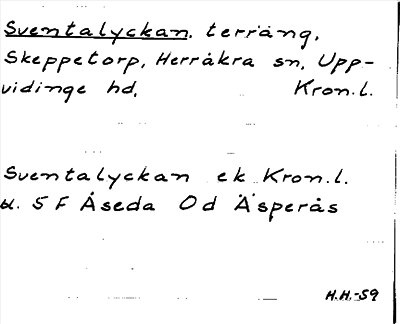 Sventalyckan. terräng,
Skeppetorp, Herråkra sn, Upp-
vidinge hd, Kron.l.
Sventalyckan ek Kron.l.
bl. 5 F Åseda Od Äsperås
H.H.-59